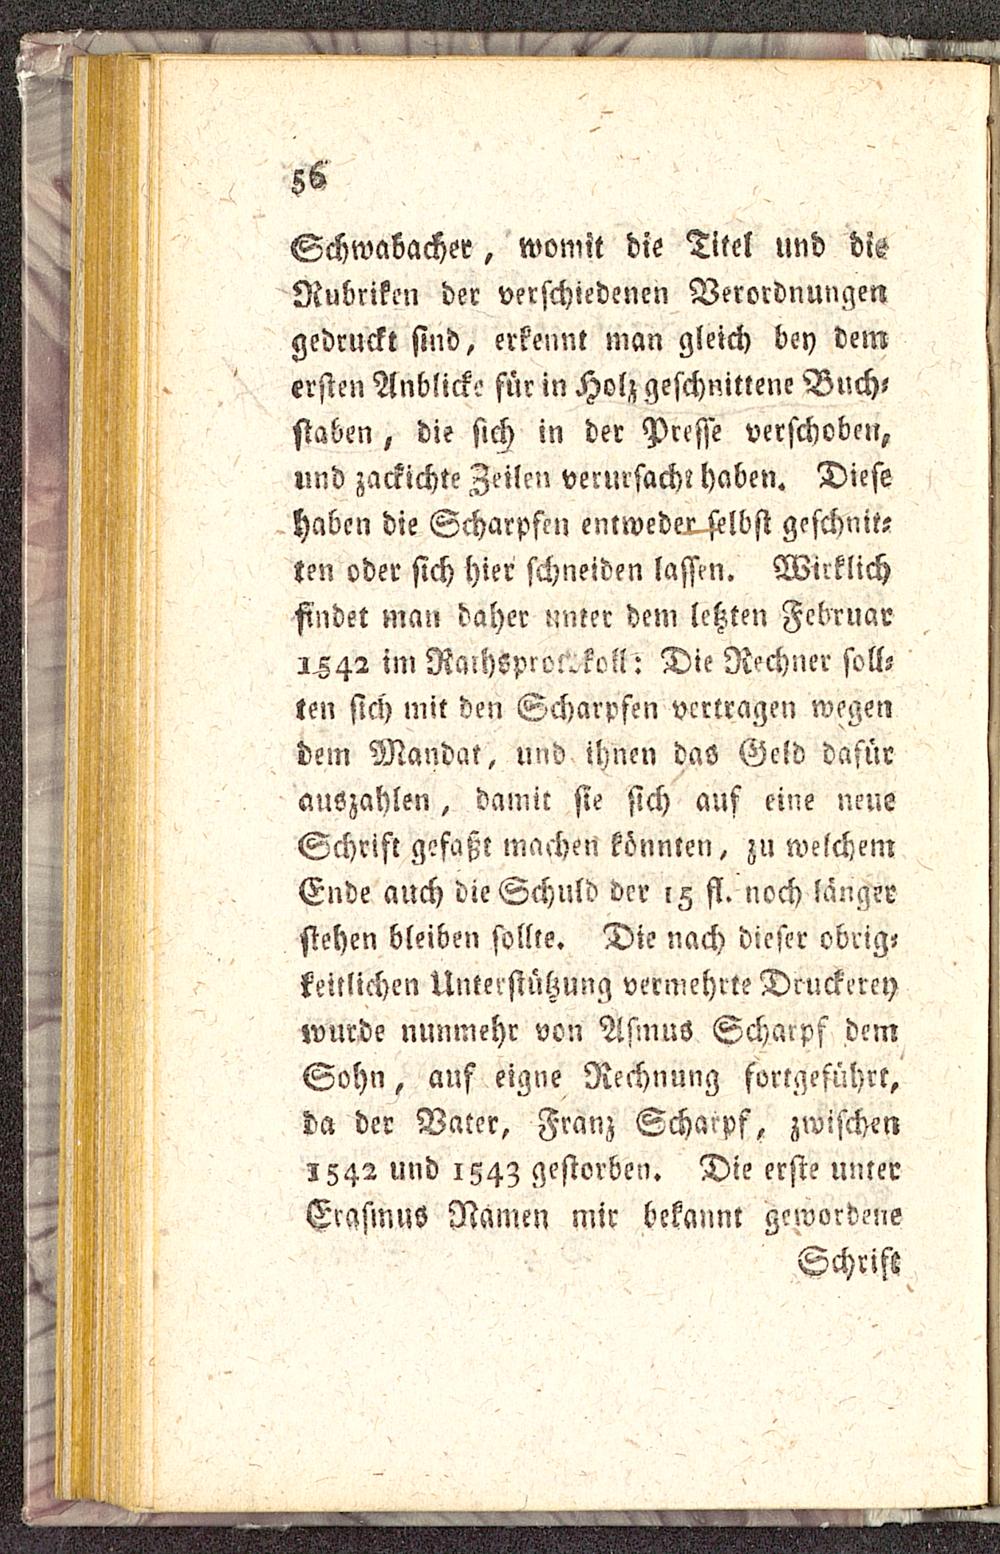 56
Schwabacher, womit die Titel und die
Rubriken der verschiedenen Verordnungen
gedruckt sind, erkennt man gleich bey dem
ersten Anblicke für in Holz geschnittene Buch⸗
staben, die sich in der Presse verschoben,
und zackichte Zeilen verursacht haben. Diese
haben die Scharpfen entweder selbst geschnit⸗
ten oder sich hier schneiden lassen. Wirklich
findet man daher unter dem letzten Februar
1542 im Rathsprotokoll: Die Rechner soll⸗
ten sich mit den Scharpfen vertragen wegen
dem Mandat, und ihnen das Geld dafür
auszahlen, damit sie sich auf eine neue
Schrift gefaßt machen könnten, zu welchem
Ende auch die Schuld der 15 fl. noch länger
stehen bleiben sollte. Die nach dieser obrig⸗
keitlichen Unterstützung vermehrte Druckerey
wurde nunmehr von Asmus Scharpf dem
Sohn, auf eigne Rechnung fortgeführt,
da der Vater, Franz Scharpf, zwischen
1542 und 1543 gestorben. Die erste unter
Erasmus Namen mir bekannt gewordene
Schrift